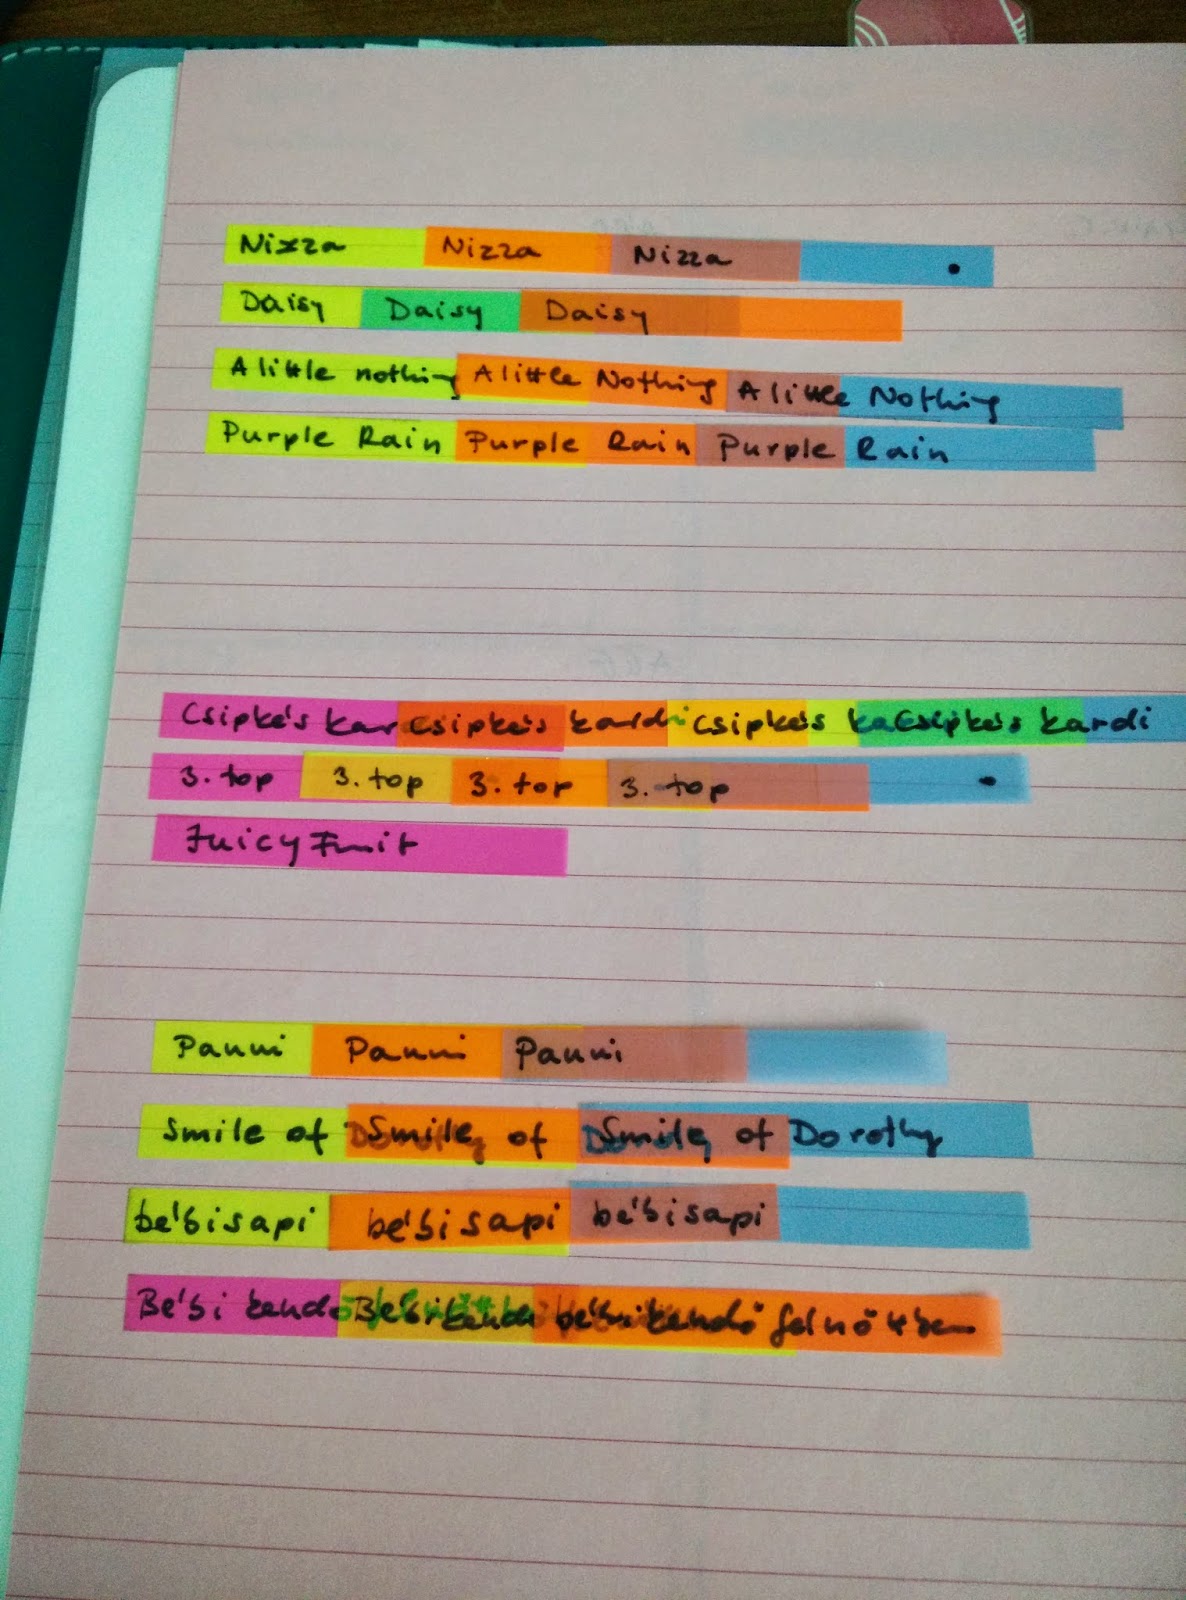 Nizza Nizza Nizza
Daisy Daisy Daisy
A little nothing A little Nothing A little Nothing
Purple Rain Purple Rain Purple Rain
Csipke's kar Csipke's kardi Csipke's ka Csipke's kardi
3. top 3. top 3. top 3. top
Juicy Fruit
Panni Panni Panni
Smile of Smile of Smile of Dorothy
be'bisapi be'bisapi be'bisapi
Be'bi kendő Be'bi kendő be'bi kendő felnőttben